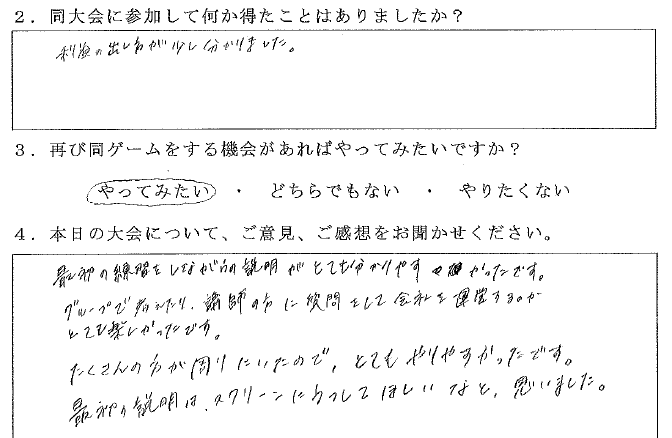 2．同大会に参加して何か得たことはありましたか？
利益の出し方が少し分かりました。
3．再び同ゲームをする機会があればやってみたいですか？
やってみたい ・ どちらでもない ・ やりたくない
4．本日の大会について、ご意見、ご感想をお聞かせください。
最初の練習をしながらの説明がとても分かりやすかったです。
グループで考えたり、講師の方に質問をして会社を運営するのが
とても楽しかったです。
たくさんの方が周りにいたので、とてもやりやすかったです。
最初の説明は、スクリーンにうつしてほしいなと、思いました。